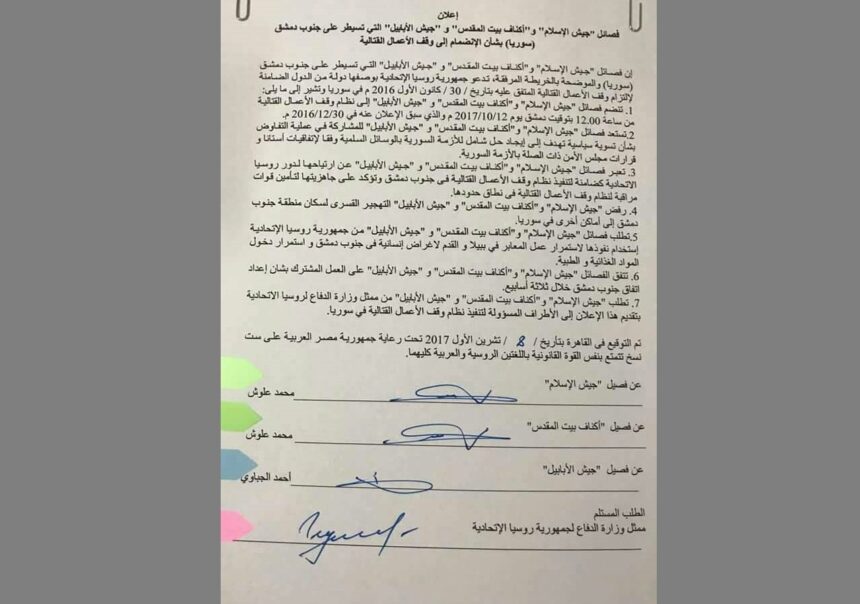 إعلان
فصائل "جيش الإسلام" و"أكناف بيت المقدس" و "جيش الأبابيل" التي تسيطر على جنوب دمشق
(سوريا) بشأن الإنضمام إلى وقف الأعمال القتالية
إن فصائل "جيش الإسلام" و "أكناف بيت المقدس" و "جيش الأبابيل" التي تسيطر على جنوب دمشق
(سوريا) والموضحة بالخريطة المرفقة، تدعو جمهورية روسيا الإتحادية بوصفها دولة من الدول الضامنة
لإلتزام وقف الأعمال القتالية المتفق عليه بتاريخ / 30 / كانون الأول 2016 م في سوريا وتشير إلى ما يلى:
1. تنضم فصائل "جيش الإسلام" و "أكناف بيت المقدس" و "جيش الأبابيل" إلى نظام وقف الأعمال القتالية
من ساعة 12.00 بتوقيت دمشق يوم 2017/10/12 م والذي سبق الإعلان عنه في 2016/12/30م.
2. تستعد فصائل "جيش الإسلام" و "أكناف بيت المقدس" و "جيش الأبابيل" للمشاركة في عملية التفاوض
بشأن تسوية سياسية تهدف إلى إيجاد حل شامل للأزمة السورية بالوسائل السلمية وفقا لإتفاقيات أستانا و
قرارات مجلس الأمن ذات الصلة بالأزمة السورية.
3. تعبر فصائل "جيش الإسلام" و "أكناف بيت المقدس" و "جيش الأبابيل" عن ارتياحها لدور روسيا
الاتحادية كضامنة لتنفيذ نظام وقف الأعمال القتالية في جنوب دمشق وتؤكد على جاهزيتها لتأمين قوات
مراقبة لنظام وقف الأعمال القتالية في نطاق حدودها.
4. رفض "جيش الإسلام" و "أكناف بيت المقدس" و "جيش الأبابيل" التهجير القسرى لسكان منطقة جنوب
دمشق إلى أماكن أخرى في سوريا.
5. تطلب فصائل "جيش الإسلام" و "أكناف بيت المقدس" و "جيش الأبابيل" من جمهورية روسيا الإتحادية
إستخدام نفوذها لاستمرار عمل المعابر في ببيلا و القدم لاغراض إنسانية فى جنوب دمشق و استمرار دخول
المواد الغذائية و الطبية.
6. تتفق الفصائل "جيش الإسلام" و "أكناف بيت المقدس" و "جيش الأبابيل" على العمل المشترك بشان إعداد
اتفاق جنوب دمشق خلال ثلاثة أسابيع.
7. تطلب "جيش الإسلام" و"أكناف بيت المقدس" و "جيش الأبابيل" من ممثل وزارة الدفاع لروسيا الاتحادية
بتقديم هذا الإعلان إلى الأطراف المسؤولة لتنفيذ نظام وقف الأعمال القتالية في سوريا.
تم التوقيع فى القاهرة بتأريخ / 8 / تشرين الأول 2017 تحت رعاية جمهورية مصر العربية على ست
نسخ تتمتع بنفس القوة القانونية باللغتين الروسية والعربية كليهما.
عن فصيل "جيش الإسلام"
محمد علوش
عن فصيل "أكناف بيت المقدس"
محمد علوش
عن فصيل "جيش الأبابيل"
أحمد الجباوي
الطلب المستلم
ممثل وزارة الدفاع لجمهورية روسيا الإتحادية